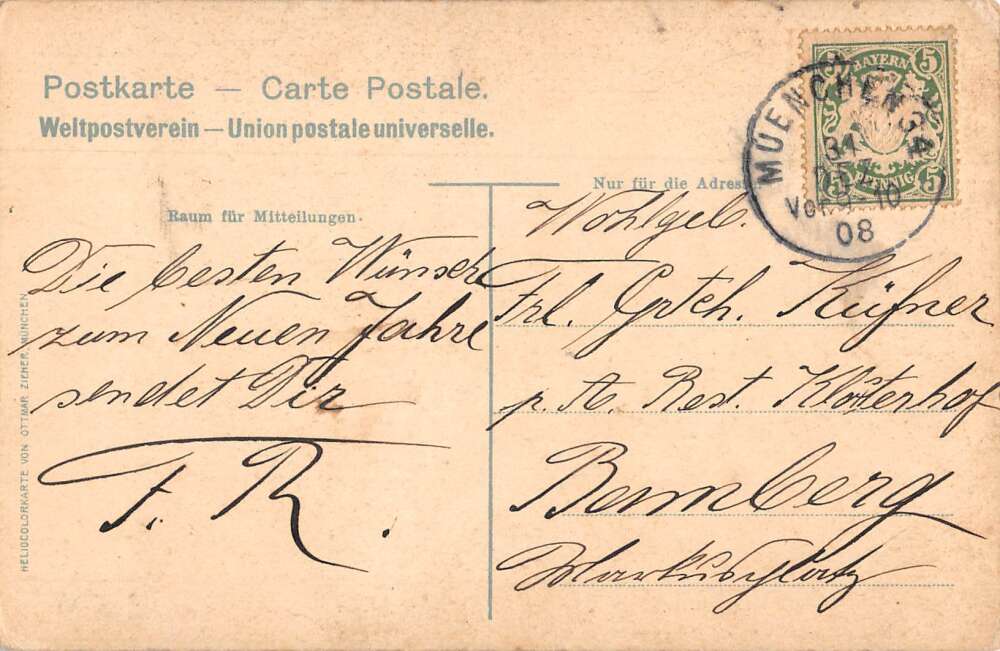 Postkarte — Carte Postale.
Weltpostverein — Union postale universelle.
BAYERN
5 5
5 5
PFENNIG
MUENCHEN 34
31
Vor. 9-10
08
Nur für die Adresse
Raum für Mitteilungen.
Die besten Wünsche
zum Neuen Jahre
sendet Dir
F. R.
Wohlgeb.
Frl. Grtch. Küfner
p. A. Rest. Klosterhof
Bamberg
Markusplatz
HELIOCOLORKARTE VON OTTMAR ZIEHER, MÜNCHEN